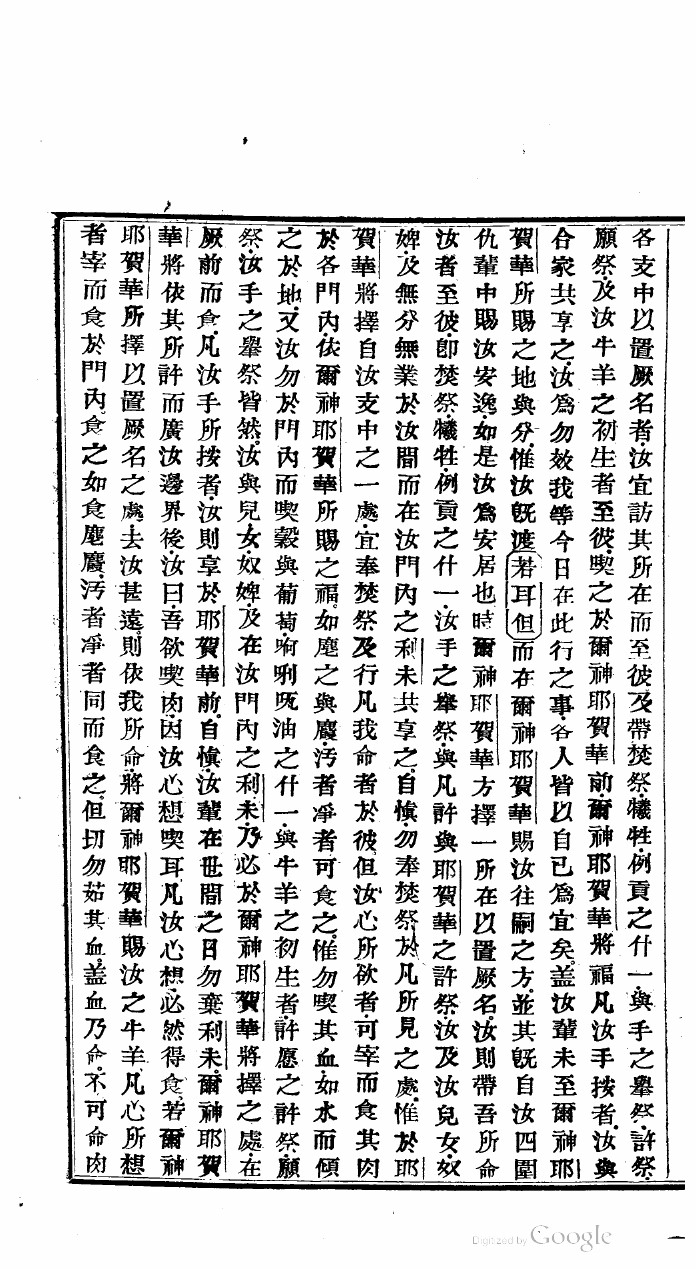 各支中以置厥名者汝宜訪其所在而至彼及帶焚祭犧牲例貢之什一與手之舉祭許祭
願祭及汝牛羊之初生者至彼喫之於爾神耶賀華前爾神耶賀華將福凡汝手按者汝與
合家共享之汝為勿效我等今日在此行之事各人皆以自己為宜矣蓋汝輩未至爾神耶
賀華所賜之地與分惟汝既渡若耳但而在爾神耶賀華賜汝往嗣之方並其既自汝四圍
仇輩中賜汝安逸如是汝為安居也時爾神耶賀華方擇一所在以置厥名汝則帶吾所命
汝者至彼卽焚祭犧牲例貢之什一汝手之舉祭與凡許與耶賀華之許祭汝及汝兒女奴
婢及無分無業於汝間而在汝門內之利未共享之自慎勿奉焚祭於凡所見之處惟於耶
賀華將擇自汝支中之一處宜奉焚祭及行凡我命者於彼但汝心所欲者可宰而食其肉
於各門內依爾神耶賀華所賜之福如麈之與麌汚者凈者可食之惟勿喫其血如水而傾
之於地又汝勿於門內而喫穀與葡萄啊唎㕭油之什一與牛羊之初生者許愿之許祭願
祭汝手之舉祭皆然汝與兒女奴婢及在汝門內之利未乃必於爾神耶賀華將擇之處在
厥前而食凡汝手所按者汝則享於耶賀華前自慎汝輩在世間之日勿棄利未爾神耶賀
華將依其所許而廣汝邊界後汝曰吾欲喫肉因汝心想喫耳凡汝心想必然得食若爾神
耶賀華所擇以置厥名之處去汝甚遠則依我所命將爾神耶賀華賜汝之牛羊凡心所想
者宰而食於門內食之如食麈麌汚者凈者同而食之但切勿茹其血蓋血乃命不可命肉
Digitized by Google